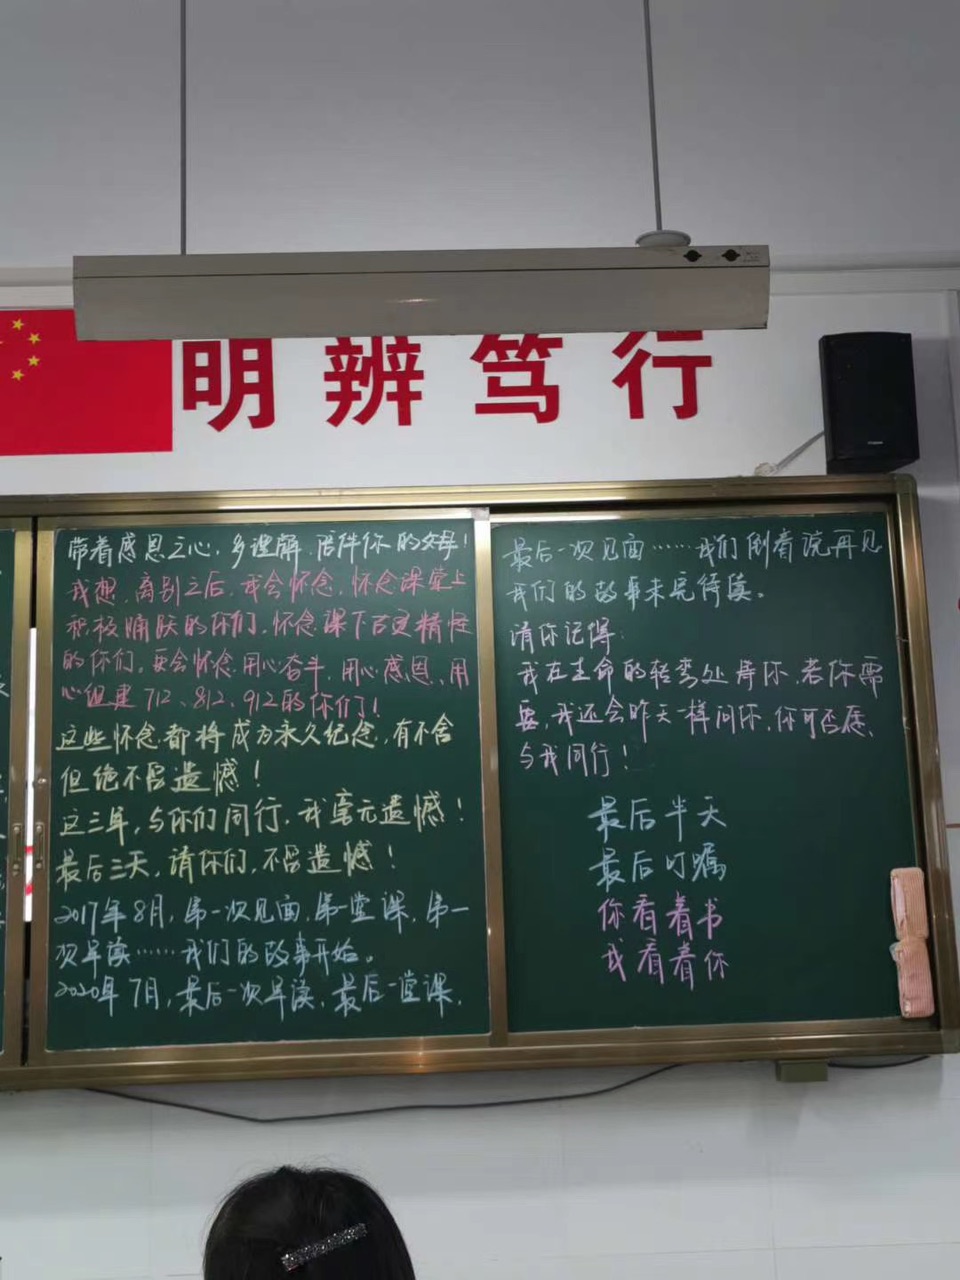 明辨笃行
带着感恩之心，多理解、陪伴你的父母！
我想，离别之后，我会怀念，怀念课堂上
积极踊跃的你们，怀念课下古灵精怪
的你们，更会怀念用心奋斗、用心感恩、用
心组建712、812、912的你们！
这些怀念都将成为永久纪念，有不舍
但绝不留遗憾！
这三年，与你们同行，我毫无遗憾！
最后三天，请你们，不留遗憾！
2017年8月，第一次见面，第一堂课，第一
次早读……我们的故事开始。
2020年7月，最后一次早读，最后一堂课，
最后一次见面……我们倒着说再见
我们的故事未完待续。
请你记得：
我在生命的转弯处等你，若你需
要，我还会昨天一样问你，你可否愿
与我同行！
最后半天
最后叮嘱
你看着书
我看着你